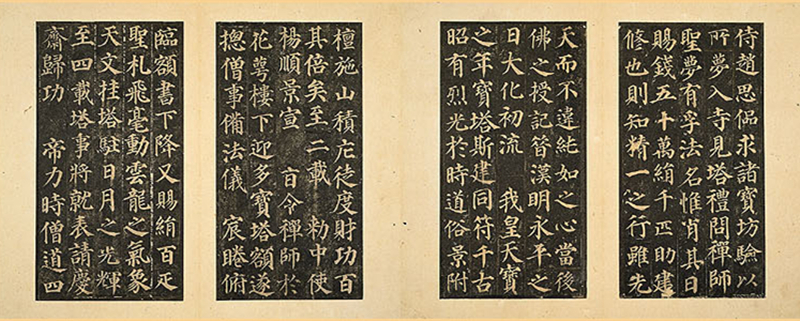 侍趙思侃求諸寶坊驗以
所夢入寺見塔禮問禪師
聖夢有孚法名惟肖其日
賜錢五十萬絹千匹助建
修也則知精一之行雖先
天而不違純如之心當後
佛之授記昔漢明永平之
日大化初流 我皇天寶
之年寶塔斯建同符千古
昭有烈光於時道俗景附
檀施山積庀徒度財功百
其倍矣至二載 勑中使
楊順景宣 旨令禪師於
花萼樓下迎多寶塔額遂
揔僧事備法儀 宸睠俯
臨額書下降又賜絹百疋
聖札飛毫動雲龍之氣象
天文挂塔駐日月之光輝
至四載塔事將就表請慶
齋歸功 帝力時僧道四